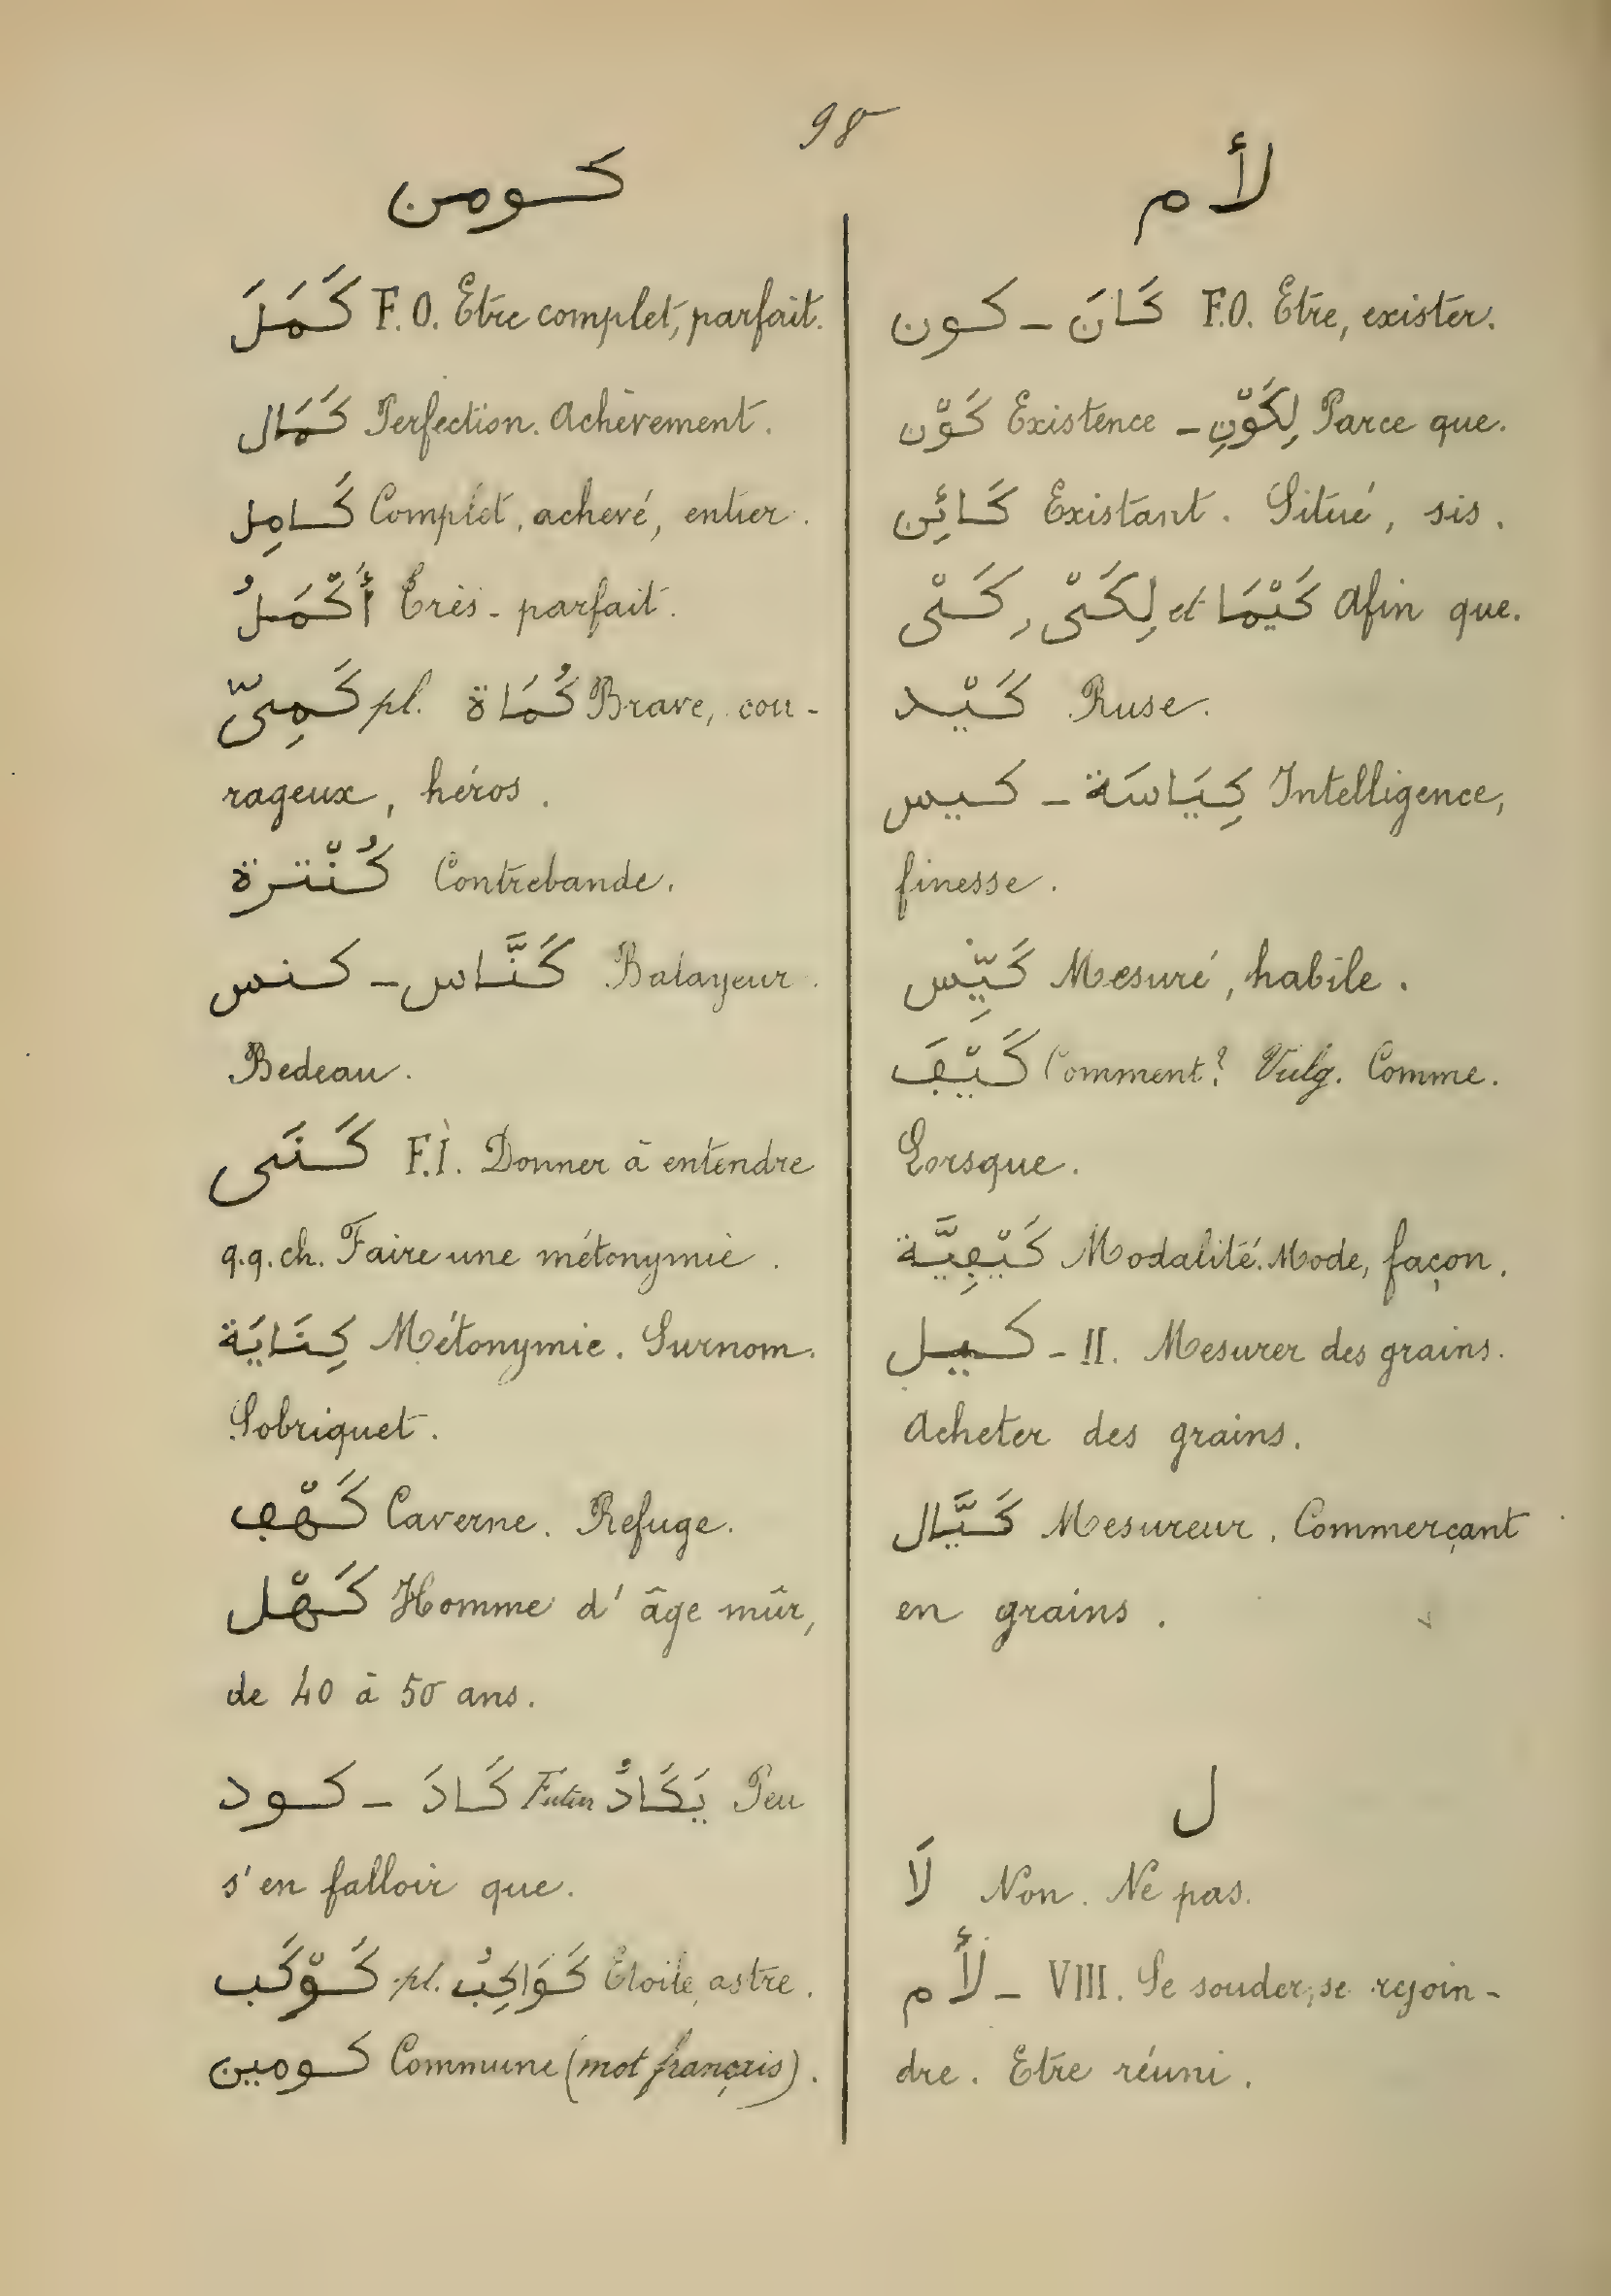 98
كومن
كَمَلَ F. O. Etre complet, parfait.
كَمَال Perfection. Achèvement.
كَامِل Complet, achevé, entier.
أَكْمَلُ Très-parfait.
كَمِىّ pl. كُمَاة Brave, cou-
rageux, héros.
كُنْترة Contrebande.
كنس - كَنَّاس Balayeur.
Bedeau.
كَنَى F. I. Donner à entendre
q.q. ch. Faire une métonymie.
كِنَايَة Métonymie. Surnom.
Sobriquet.
كَهْڢ Caverne. Refuge.
كَهْل Homme d'âge mûr,
de 40 à 50 ans.
كود - كَادَ Futur يَكَادُ Peu
s'en falloir que.
كَوْكَب pl. كَوَاكِبُ Etoile, astre.
كومين Commune (mot français).
لأم
كون - كَانَ F. O. Etre, exister.
كَوْن Existence - لِكَوْنِ Parce que.
كَائِن Existant. Situé, sis.
كَىْ, لِكَىْ et كَيْمَا Afin que.
كَيْد Ruse.
كيس - كِيَاسَة Intelligence,
finesse.
كَيِّس Mesuré, habile.
كَيْڢَ Comment? Vulg. Comme.
Lorsque.
كَيْڢِيَّة Modalité. Mode, façon.
كيل - II. Mesurer des grains.
Acheter des grains.
كَيَّال Mesureur. Commerçant
en grains.
ل
لَا Non. Ne pas.
لأم - VIII. Se souder, se rejoin-
dre. Etre réuni.